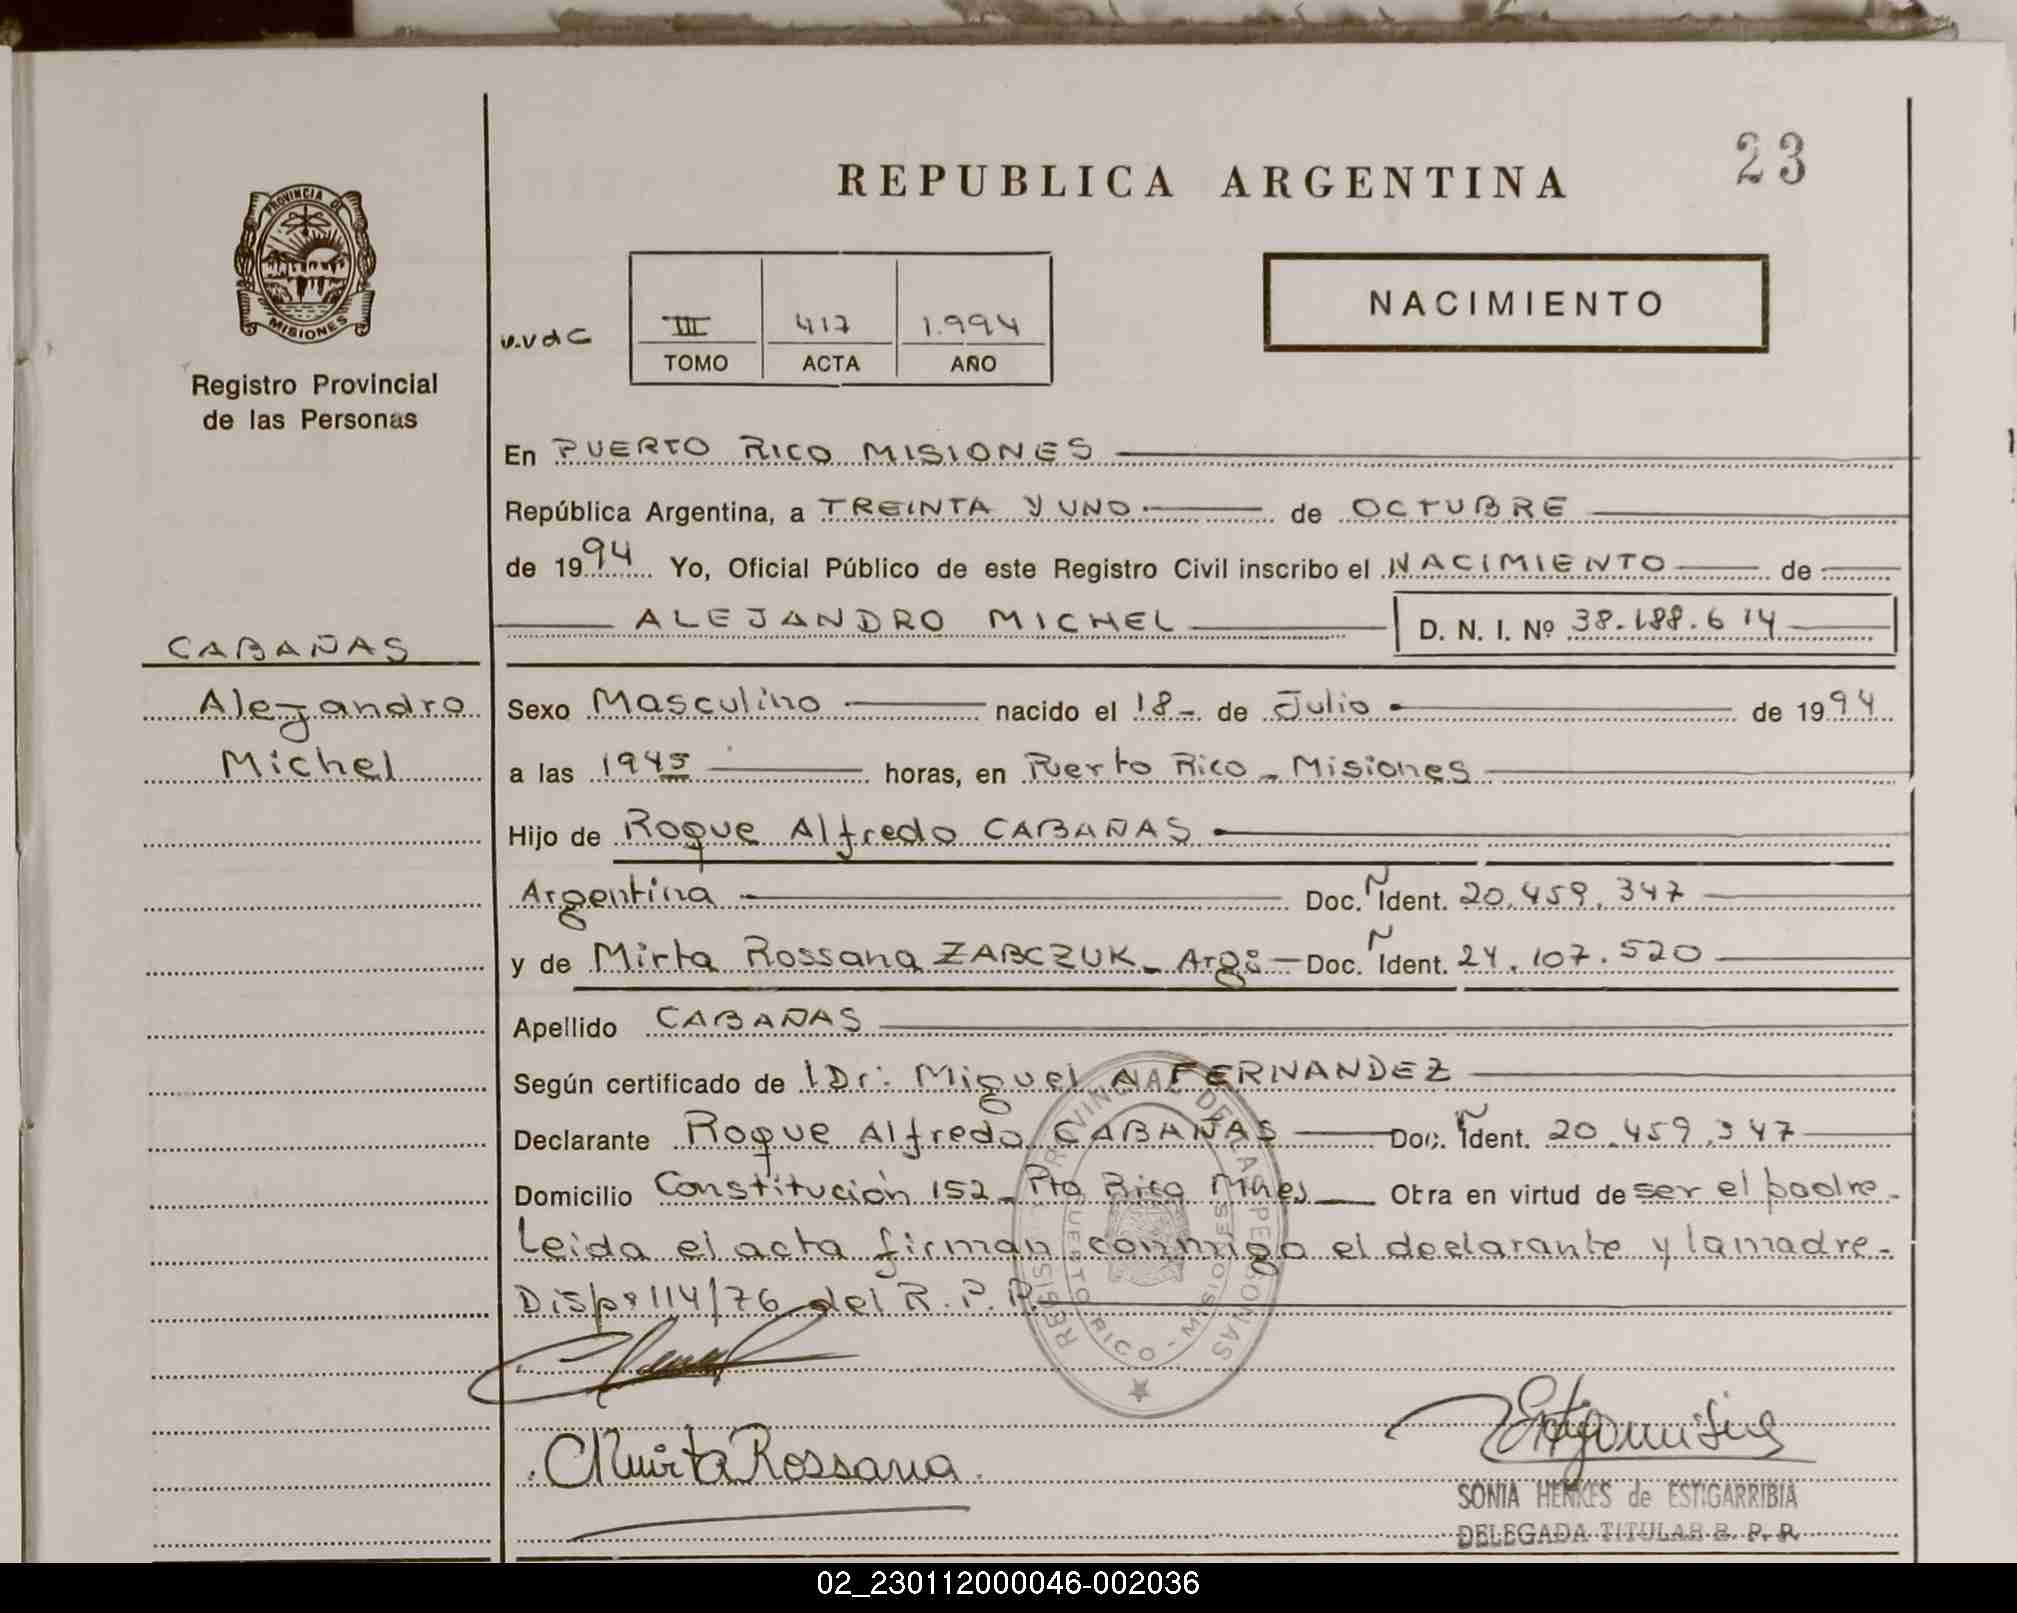 23
REPUBLICA ARGENTINA
PROVINCIA DE
MISIONES
Registro Provincial
de las Personas
v.v d C
III 417 1.994
TOMO ACTA AÑO
NACIMIENTO
En PUERTO RICO MISIONES
República Argentina, a TREINTA Y UNO de OCTUBRE
de 1994 Yo, Oficial Público de este Registro Civil inscribo el NACIMIENTO de
ALEJANDRO MICHEL D. N. I. Nº 38.188.614
CABAÑAS
Alejandro
Michel
Sexo Masculino nacido el 18 - de Julio de 1994
a las 1945 horas, en Puerto Rico - Misiones
Hijo de Roque Alfredo CABAÑAS
Argentina Doc. Ident. 20.459.347
y de Mirta Rossana ZABCZUK - Arg: Doc. Ident. 24.107.520
Apellido CABAÑAS
Según certificado de Dr: Miguel A FERNANDEZ
Declarante Roque Alfredo CABAÑAS Doc. Ident. 20.459.347
Domicilio Constitución 152 - Pto Rico Mnes Obra en virtud de ser el padre -
Leida el acta firman conmigo el declarante y la madre -
Disp: 114/76 del R. P. P.
REGISTRO PROVINCIAL DE LAS PERSONAS
PUERTO RICO - MISIONES
Mirta Rossana
SONIA HENKES de ESTIGARRIBIA
DELEGADA TITULAR R. P. P.
02_230112000046-002036